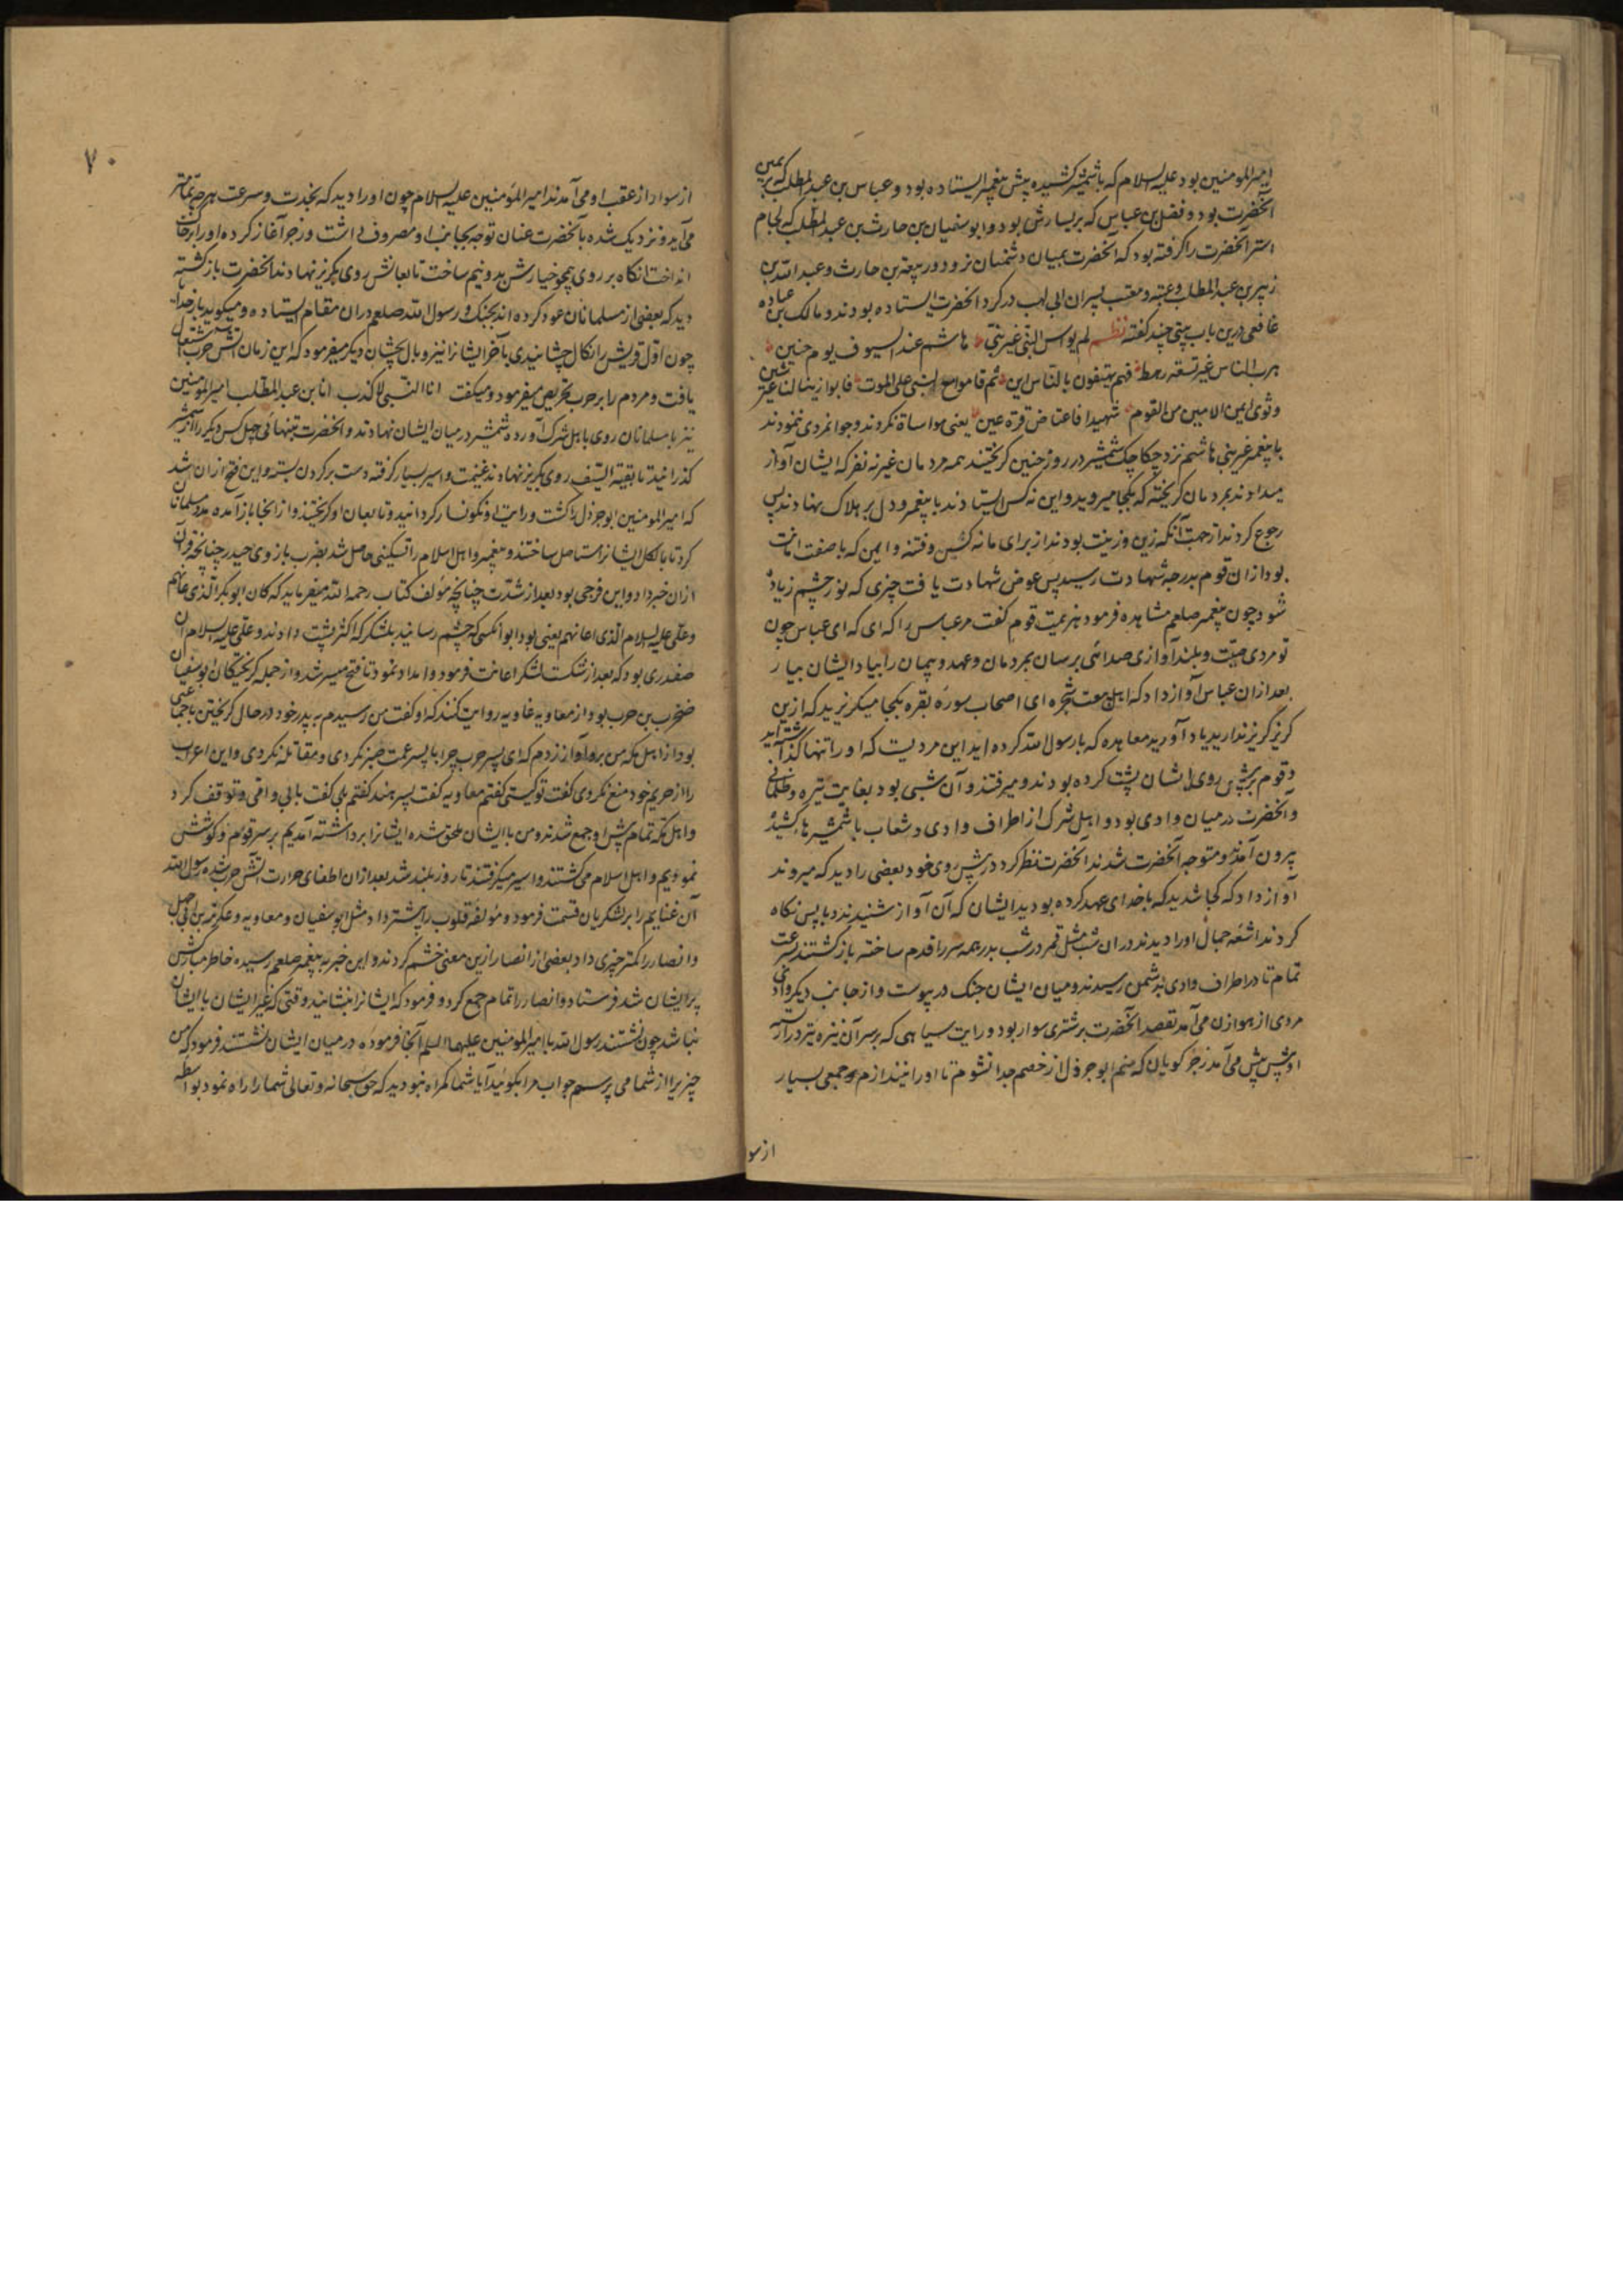 امیرالمومنین بود علیه السلام که با شمشیر کشیده پیش پیغمبر ایستاده بود و عباس بن عبدالمطلب که بر یمین
آنحضرت بود و فضل بن عباس که بر یسارش بود و ابوسفیان بن حارث بن عبدالمطلب که لجام
استر آنحضرت را گرفته بود که آنحضرت بمیان دشمنان نرود و ربیعة بن حارث و عبدالله بن
زبیر بن عبدالمطلب و عتبه و معتب پسران ابی لهب در گرد آنحضرت ایستاده بودند و مالک بن عباده
غافقی درین باب بیتی چند گفته نظم لم یواس النبی غیر بنی هاشم عند السیوف یوم حنین
هرب الناس غیر تسعة رهط فهم یهتفون بالناس این ثم قاموا مع النبی علی الموت فابوا زینا لنا غیر شین
وثوی ایمن الامین من القوم شهیدا فاعتاض قرة عین یعنی مواساة نکردند و جوانمردی ننمودند
با پیغمبر غیر بنی هاشم نزد چکاچک شمشیر در روز حنین گریختند همه مردمان غیر نه نفر که ایشان آواز
میدادند بمردمان گریخته که بکجا میروید و این نه کس ایستادند با پیغمبر و دل بر هلاک نهادند پس
رجوع کردند از جهت آنکه زین و زینت بودند از برای ما نه شین و فتنه و ایمن که با صفت امانت
بود ازان قوم بدرجه شهادت رسید پس عوض شهادت یافت چیزی که نور چشم زیاده
شود چون پیغمبر صلعم مشاهده فرمود هزیمت قوم گفت مر عباس را که ای عباس چون
تو مردی صیت و بلند آوازی صدائی برسان بمردمان و عهد و پیمان را بیاد ایشان بیار
بعد ازان عباس آواز داد که اهل بیعت شجره ای اصحاب سوره بقره بکجا میگریزید که ازین
گریز گریز ندارید یاد آورید معاهده که با رسول الله کرده اید این مردیست که او را تنها گذاشته اید
و قوم بر پیش روی ایشان پشت کرده بودند و میرفتند و آن شبی بود بغایت تیره و ظلمانی
و آنحضرت در میان وادی بود و اهل شرک از اطراف وادی و شعاب با شمشیرها کشیده
بیرون آمدند و متوجه آنحضرت شدند آنحضرت نظر کرد در پیش روی خود بعضی را دید که میروند
آواز داد که کجا شدید که با خدای عهد کرده بودید ایشان که آن آواز شنیدند و با پس نگاه
کردند اشعه جمال او را دیدند در ان شب مثل قمر در شب بدر همه سر را قدم ساخته بازگشتند بسرعت
تمام تا در اطراف وادی بدشمن رسیدند و میان ایشان جنگ در پیوست و از جانب دیگر وادی
مردی از هوازن می آمد بقصد آنحضرت بر شتری سوار بود و رایت سیاهی که بر سر آن نیزه تیز دراز
او پیش پیش می آمد رجز گویان که منم ابوجرول از خصم جدا نشوم تا او را نیندازم و جمعی بسیار
از سو
۷۰
از سواد از عقب او می آمدند امیرالمومنین علیه السلام چون او را دید که بحدت و سرعت هر چه تمامتر
می آید و نزدیک شده بآنحضرت عنان توجه بجانب او مصروف داشت و رجز آغاز کرده او را بر خاک
انداخت آنگاه بر روی همچو خیارش بدو نیم ساخت تابعانش روی بگریز نهادند آنحضرت بازگشته
دید که بعضی از مسلمانان عود کرده اند بجنگ و رسول الله صلعم در ان مقام ایستاده و میگوید بار خدایا
چون اول قریش را نکال چشانیدی بآخر ایشانرا نیز وبال بچشان دیگر میفرمود که این زمان آتش حرب اشتعال
یافت و مردم را بر حرب تحریص میفرمود و میگفت انا النبی لاکذب انا بن عبدالمطلب امیرالمومنین
نیز با مسلمانان روی باهل شرک آورده شمشیر در میان ایشان نهادند و آنحضرت بتنهائی چهل کس دیگر را از شمشیر
گذرانید تا بقیة السیف روی بگریز نهادند غنیمت و اسیر بسیار گرفته دست بر گردن بسته و این فتح ازان شد
که امیرالمومنین ابوجرول را کشت و رایت او نگونسار گردانید و تابعان او گریختند و از آنجا باز آمده مدد مسلمانان
کرد تا بالکل ایشانرا مستاصل ساختند و پیغمبر و اهل اسلام را تسکینی حاصل شد بضرب بازوی حیدر چنانچه قرآن
ازان خبر داد و این فرجی بود بعد از شدت چنانچه مولف کتاب رحمه الله میفرماید که کان ابوبکر الذی عانهم
و علی علیه السلام الذی اعانهم یعنی بود ابو آنکسی که چشم رسانید بلشکر که اکثر پشت دادند و علی علیه السلام آن
صفدری بود که بعد از شکست لشکر اعانت فرمود و امداد نمود تا فتح میسر شد و از جمله گریختگان ابوسفیان
صخر بن حرب بود و از معاویه غاویه روایت کنند که او گفت من رسیدم به پدر خود در حال گریختن با جماعتی
بود از اهل مکه من برو آواز زدم که ای پسر حرب چرا با پسر عمت صبر نکردی و مقاتله نکردی و این اعراب
را از حریم خود منع نکردی گفت تو کیستی گفتم معاویه گفت پسر هند گفتم بلی گفت بابی و امی و توقف کرد
و اهل مکه تمام پیش او جمع شدند و من با ایشان ملحق شده ایشانرا برداشته آمدیم بر سر قوم و کوشش
نمودیم و اهل اسلام می کشتند و اسیر میگرفتند تا روز بلند شد بعد ازان اطفای حرارت آتش حرب شده رسول الله
آن غنایم را بر لشکریان قسمت فرمود و مؤلفه قلوب را بیشتر داد مثل ابوسفیان و معاویه و عکرمة بن ابی جهل
و انصار را کمتر چیزی داد بعضی از انصار ازین معنی خشم کردند و این خبر به پیغمبر صلعم رسیده خاطر مبارکش
پریشان شد فرستاد و انصار را تمام جمع کرد و فرمود که ایشانرا بنشانید وقتی که غیر ایشان با ایشان
نباشد چون نشستند رسول الله با امیرالمومنین علیهما السلم آنجا فرموده در میان ایشان نشستند فرمود که من
چیزیرا از شما می پرسم جواب مرا بگوئید آیا شما گمراه نبودید که حق سبحانه و تعالی شما را راه نمود بواسطه